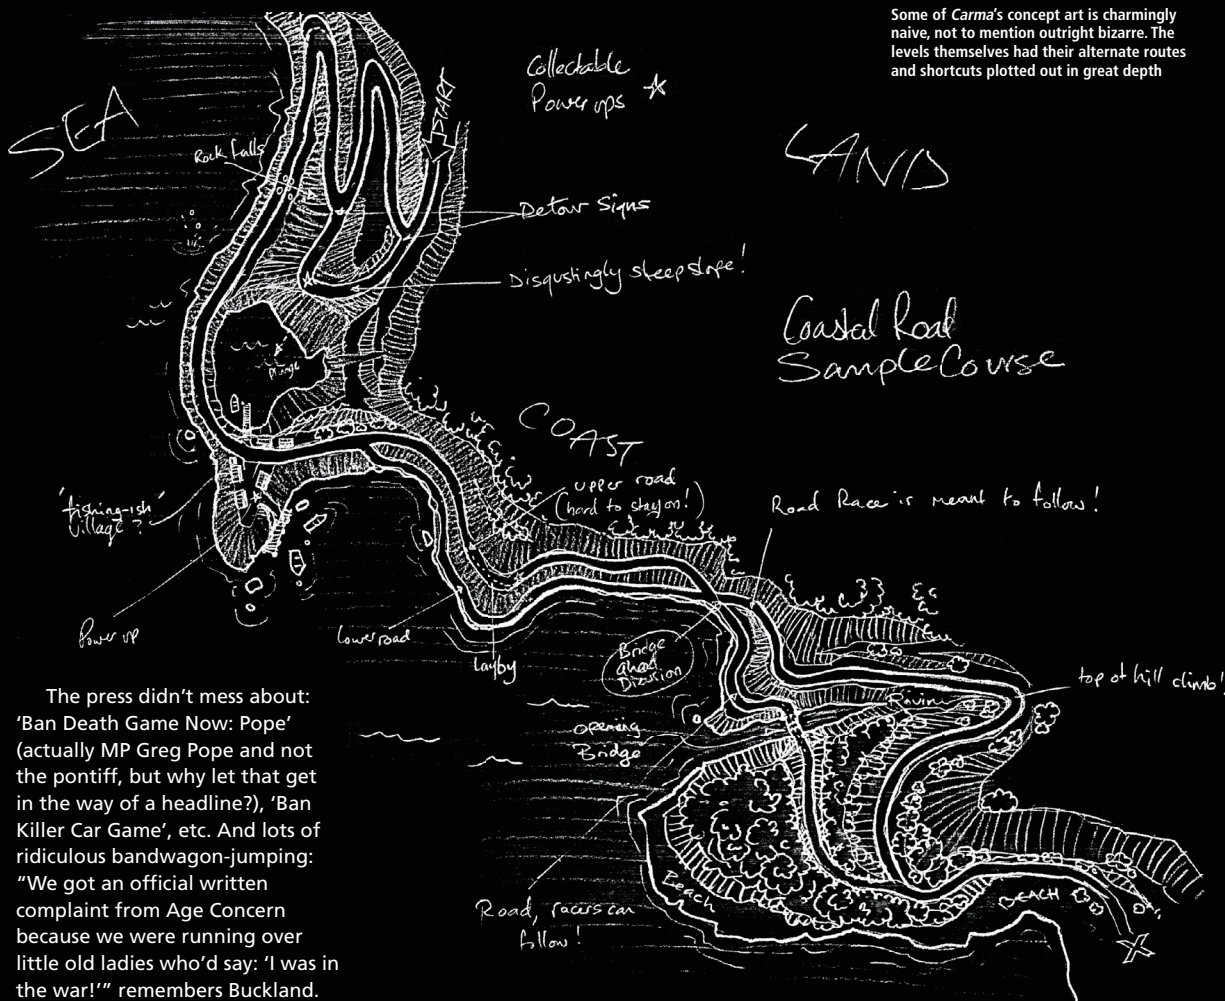 Some of Carma's concept art is charmingly
naive, not to mention outright bizarre. The
levels themselves had their alternate routes
and shortcuts plotted out in great depth
Collectable
Power ups
START
SEA
LAND
Rock falls
Detour Signs
Disgustingly steep slope!
Coastal Road
Sample Course
plunge
COAST
upper road
(hard to stay on!)
Road Race is meant to follow!
'fishing-ish'
Village?
Power up
Lower road
Layby
Bridge
ahead
top of hill climb!
opening
Bridge
Beach
BEACH
Road, racers can
follow!
X
The press didn't mess about:
'Ban Death Game Now: Pope'
(actually MP Greg Pope and not
the pontiff, but why let that get
in the way of a headline?), 'Ban
Killer Car Game', etc. And lots of
ridiculous bandwagon-jumping:
"We got an official written
complaint from Age Concern
because we were running over
little old ladies who'd say: 'I was in
the war!'" remembers Buckland.